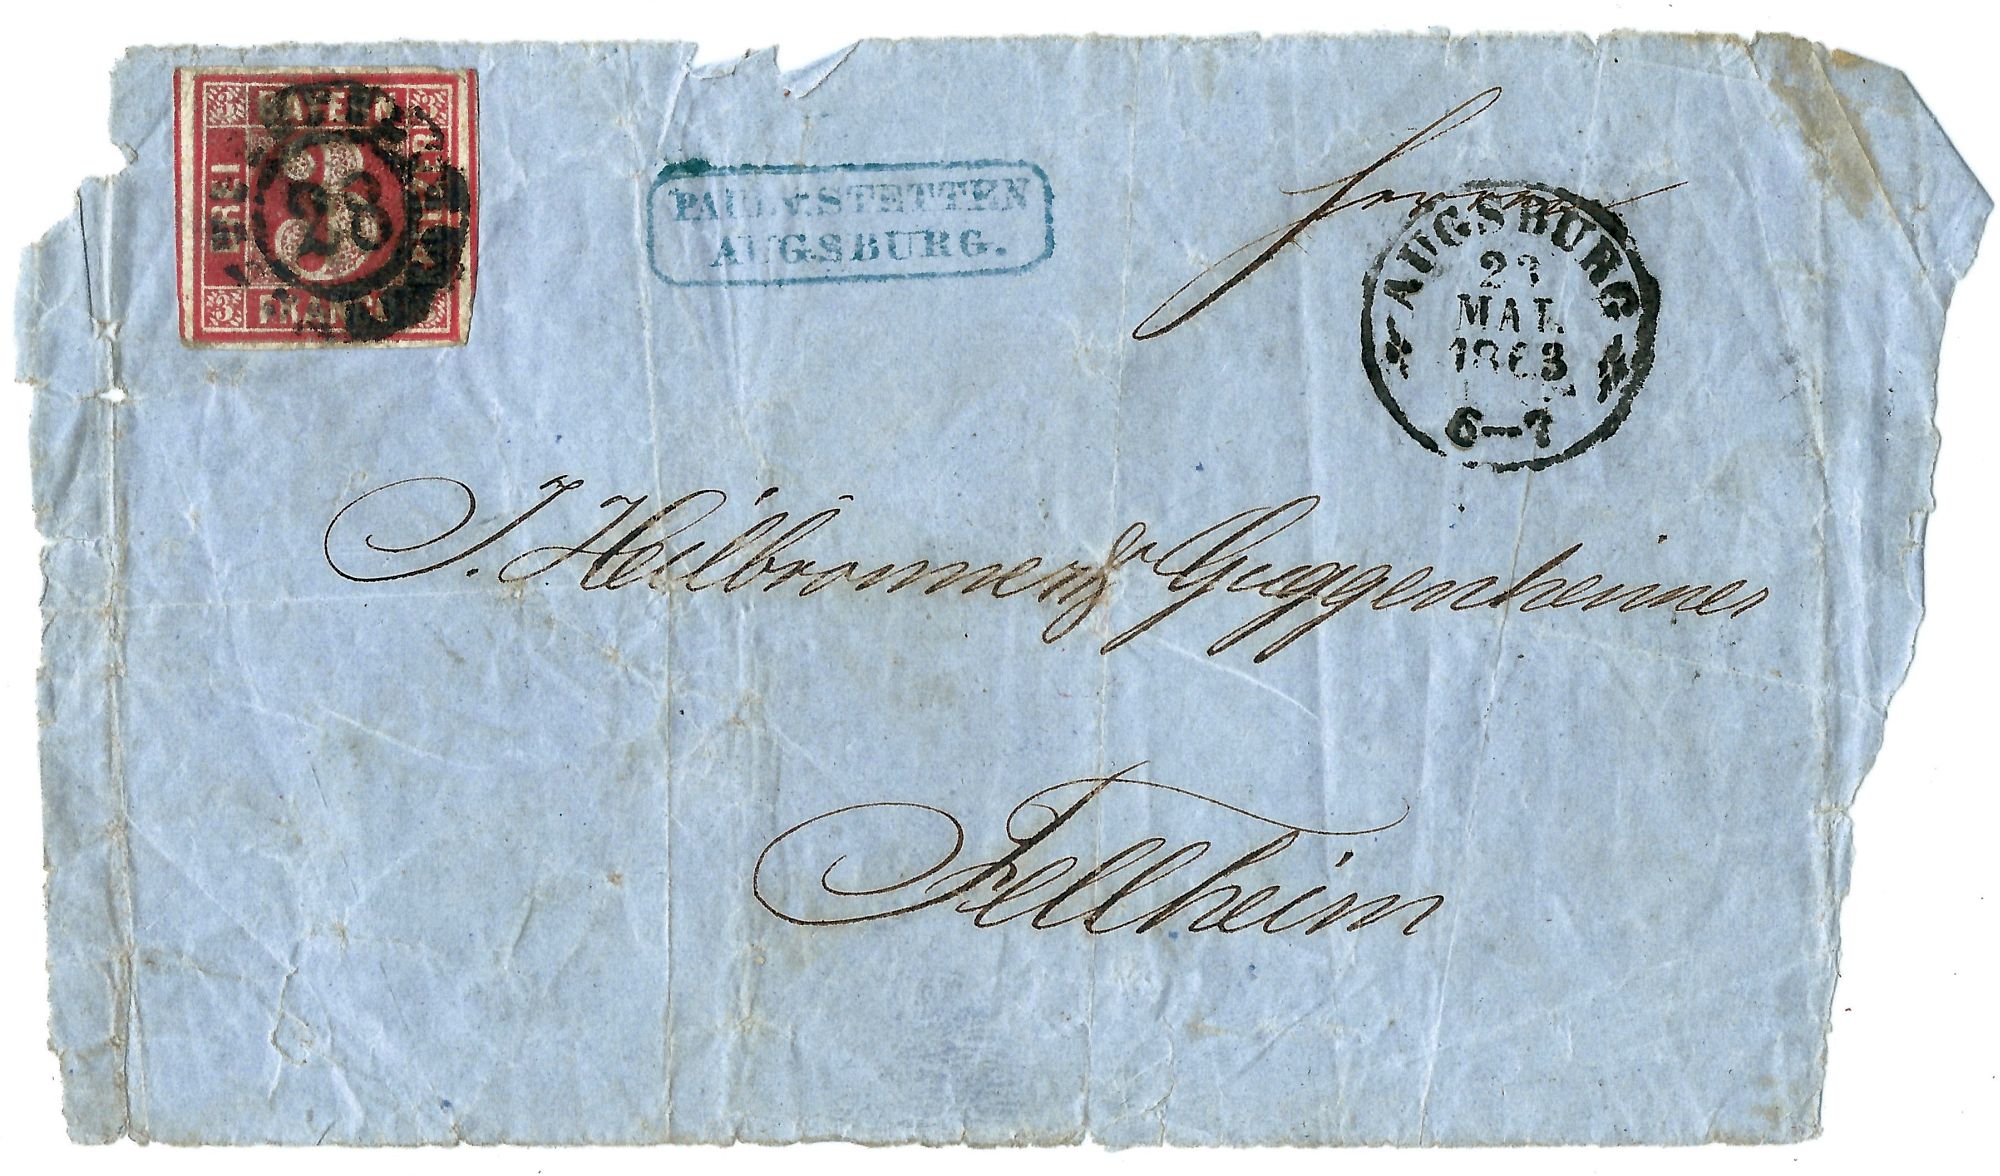 3 BAYERN 3
DREI
KREUZER
3 FRANCO
28
PAUL v. STETTEN
AUGSBURG.
franco
AUGSBURG
23
MAI
1863
6-7
J. Heilbronner & Guggenheimer
Fellheim